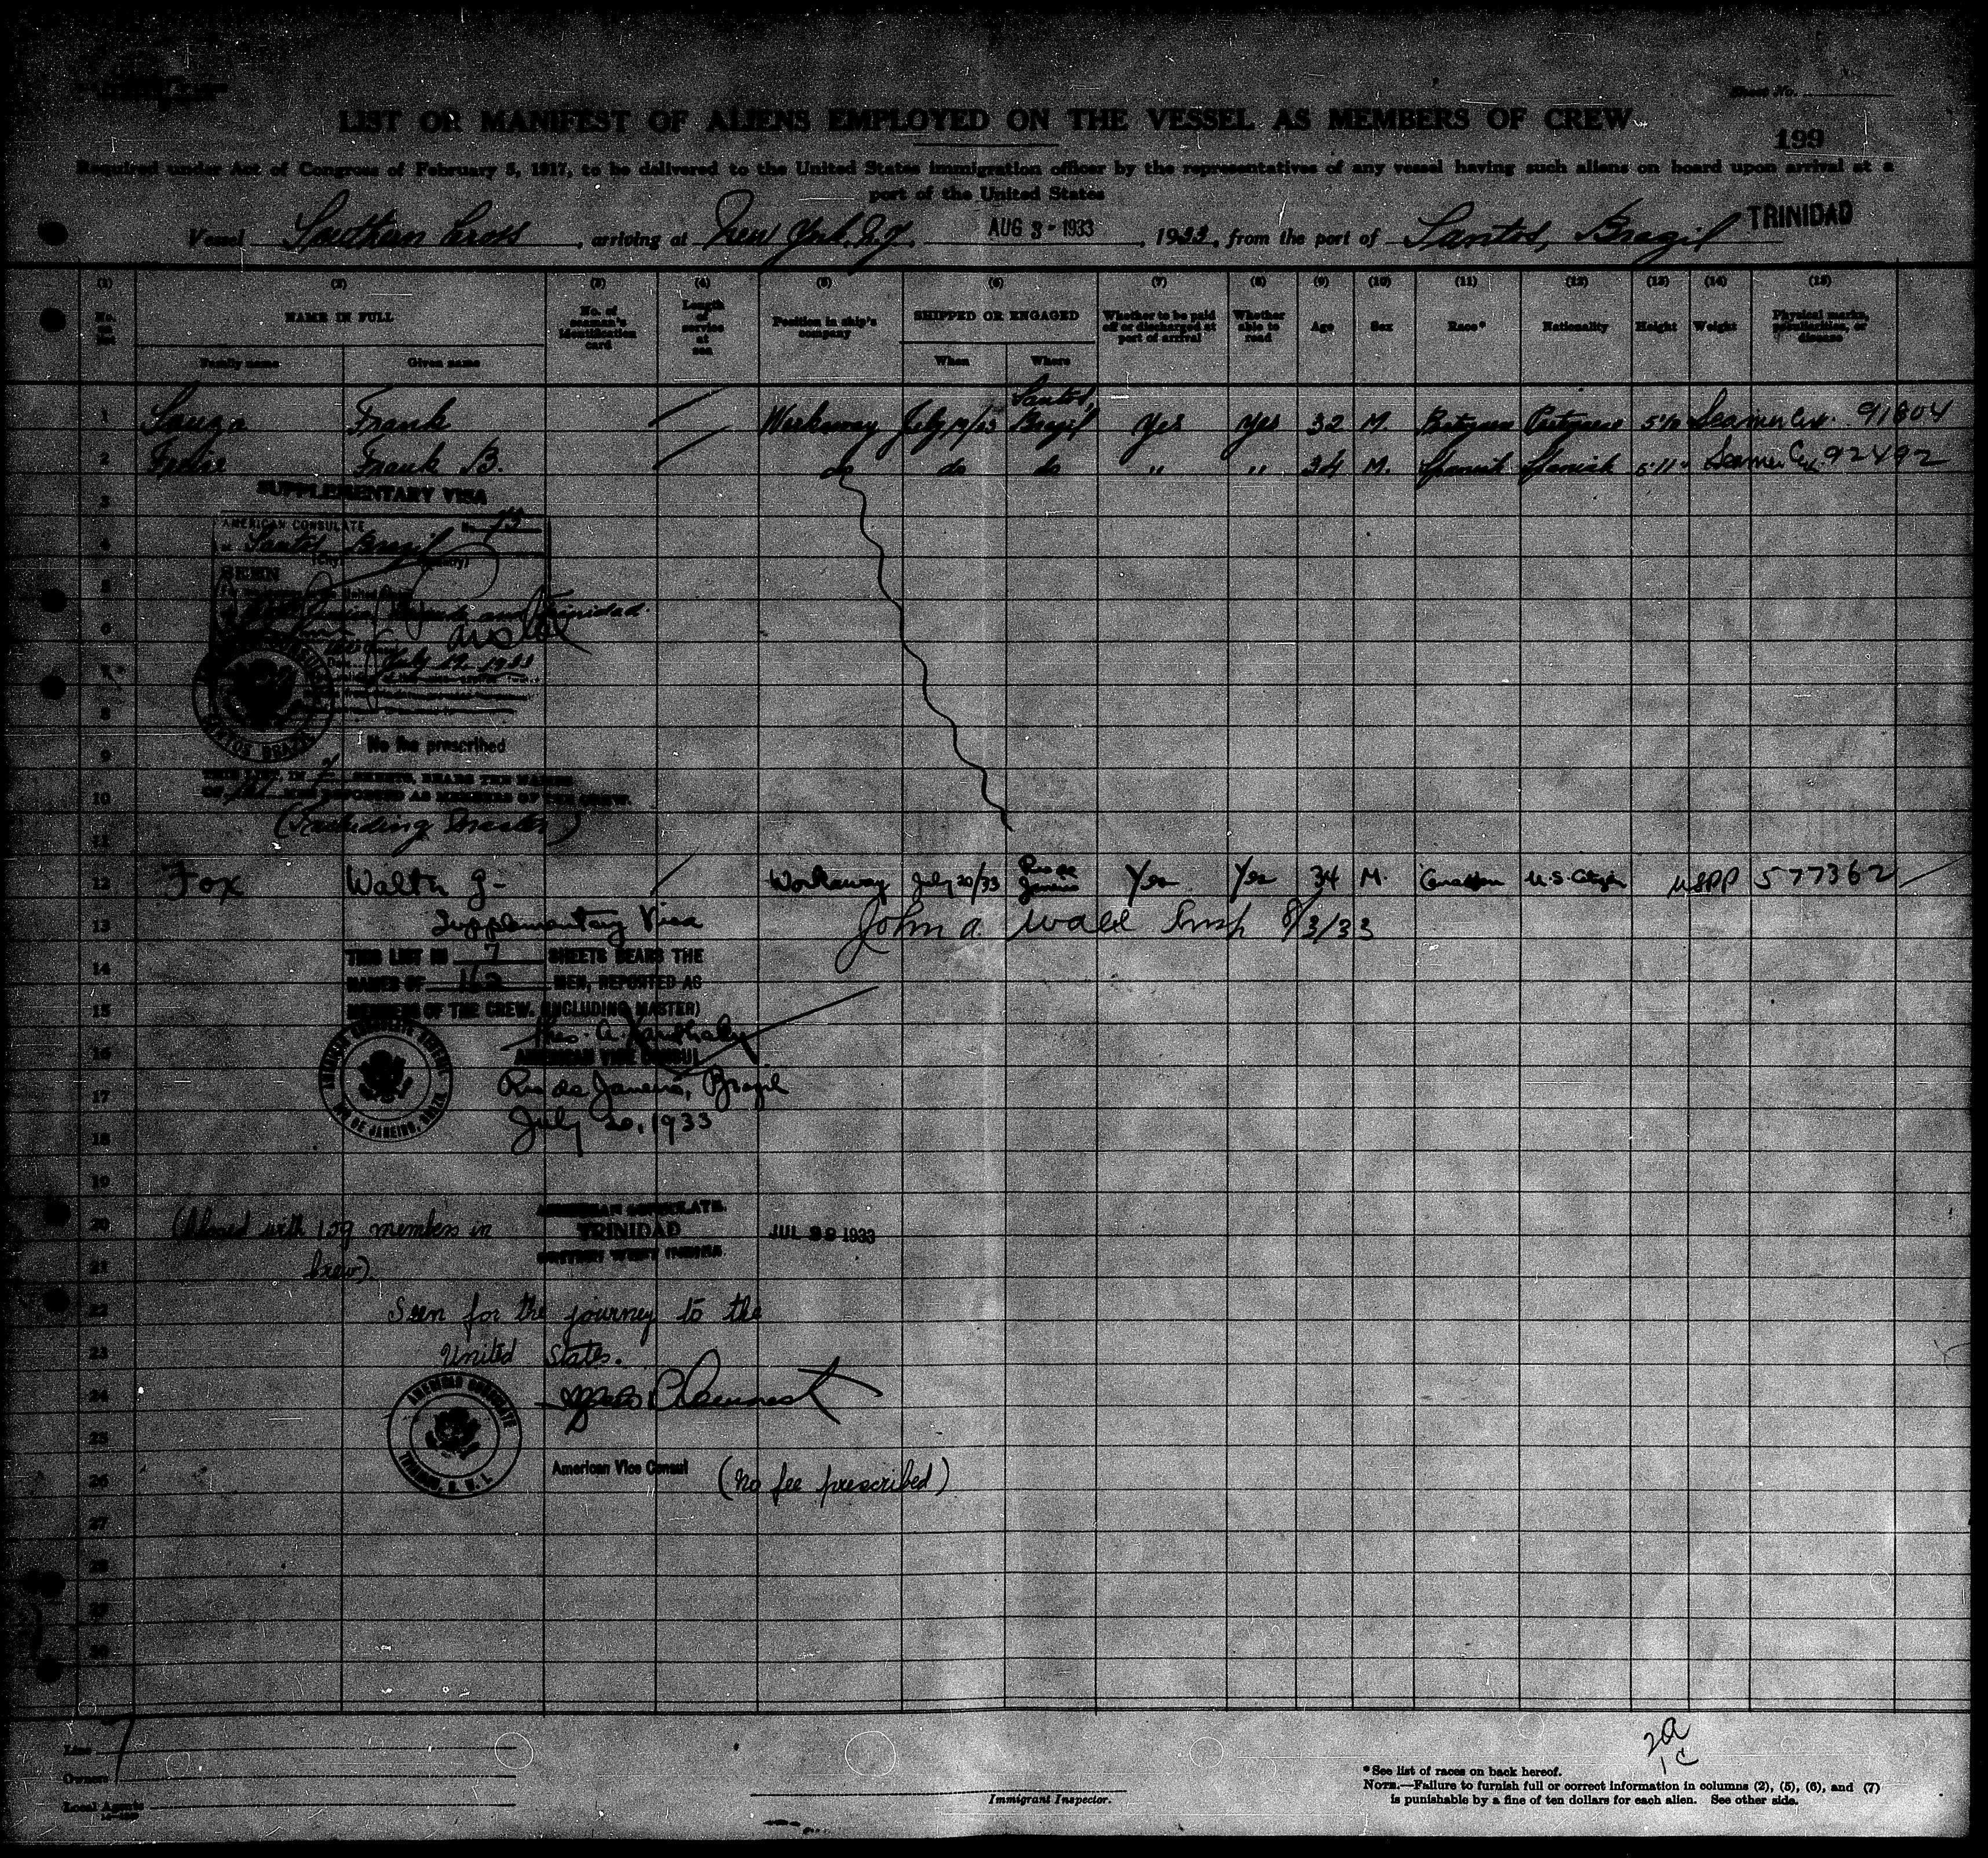 Sheet No.
LIST OR MANIFEST OF ALIENS EMPLOYED ON THE VESSEL AS MEMBERS OF CREW
199
Required under Act of Congress of February 5, 1917, to be delivered to the United States immigration officer by the representatives of any vessel having such aliens on board upon arrival at a
port of the United States
Vessel Southern Cross, arriving at New York, N.Y. AUG 3 - 1933, 1933, from the port of Santos, Brazil TRINIDAD
(1) (2) (3) (4) (5) (6) (7) (8) (9) (10) (11) (12) (13) (14) (15)
No. on list NAME IN FULL No. of seaman's identification card Length of service at sea Position in ship's company SHIPPED OR ENGAGED Whether to be paid off or discharged at port of arrival Whether able to read Age Sex Race* Nationality Height Weight Physical marks, peculiarities, or disease
Family name Given name When Where
1 Souza Frank Workaway July 19/33 Santos, Brazil Yes Yes 32 M. Portuguese Portuguese 91804
2 Frank B. do do do " " 34 M. Spanish Spanish 5'11" 92492
3 SUPPLEMENTARY VISA
AMERICAN CONSULATE No.
4 Santos Brazil
(City) (Country)
5 SEEN
and Trinidad.
6
7 July 19, 1933
8
SANTOS BRAZIL
9 No fee prescribed
THIS LIST, IN SHEETS, BEARS THE NAMES
10 OF MEN REPORTED AS MEMBERS OF THE CREW.
11 (Including Master)
12 Fox Walter J- Workaway July 20/33 Rio de Janeiro Yes Yes 34 M. U.S. Citizen USPP 577362
13 Supplementary Visa John A. Wall Insp 8/3/33
THIS LIST IN 7 SHEETS BEARS THE
14 NAMES OF 162 MEN, REPORTED AS
15 MEMBERS OF THE CREW. (INCLUDING MASTER)
16 AMERICAN VICE CONSUL
17 Rio de Janeiro, Brazil
RIO DE JANEIRO, BRAZIL
18 July 20, 1933
19
AMERICAN CONSULATE
20 (Closed with 159 members in TRINIDAD JUL 29 1933
BRITISH WEST INDIES
21 Crew)
22 Seen for the journey to the
23 United States.
24 AMERICAN CONSULATE
25
TRINIDAD, B. W. I.
26 American Vice Consul (No fee prescribed)
27
28
29
30
2a
1c
Line
Owners
Local Agents
Immigrant Inspector.
*See list of races on back hereof.
NOTE.—Failure to furnish full or correct information in columns (2), (5), (6), and (7)
is punishable by a fine of ten dollars for each alien. See other side.